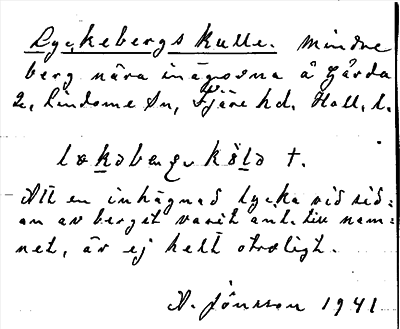 Lyckebergs kulle. Mindre
berg nära inägorna å Gårda
2, Lindome Sn, Fjäre hd. Hall. l.
lækəbærgs kölə †.
Att en inhägnad lycka vid sid-
an av berget varit anl. till nam-
net, är ej helt otroligt.
A. Jönsson 1941